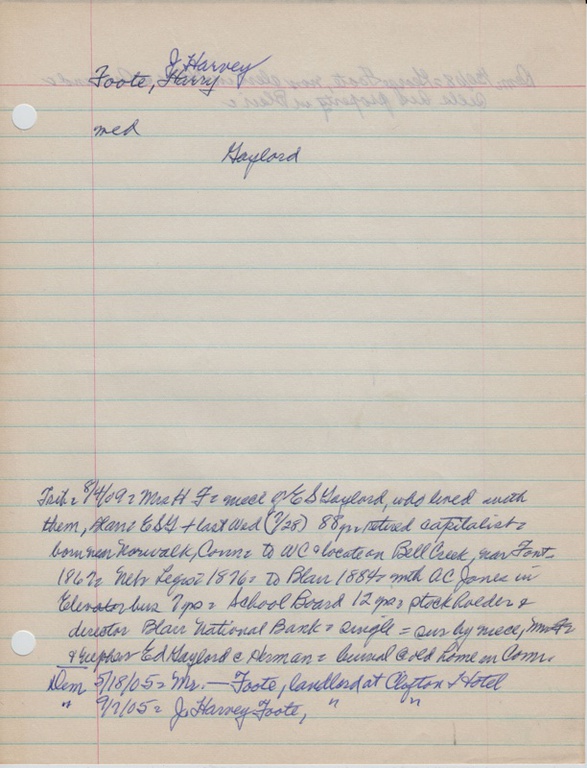 J. Harvey
Foote, Harry
med
Gaylord
Trib = 8/4/09 = Mrs H F = niece of E S Gaylord, who lived with
them, Blair = ESG + last Wed (7/28) 88 yr = retired capitalist =
born near Norwalk, Conn = to WC = location Bell Creek, near Font
1867 = Neb Legist 1876 = to Blair 1884 = with AC Jones in
Elevator bus 7 yrs = School Board 12 yrs = stockholder &
director Blair National Bank = single = sur by niece, Mrs
& nephew Ed Gaylord c Herman = buried @ old home in Conn.
Dem 5/18/05 = Mr. — Foote, landlord at Clifton Hotel
" 9/7/05 = J. Harvey Foote, " "